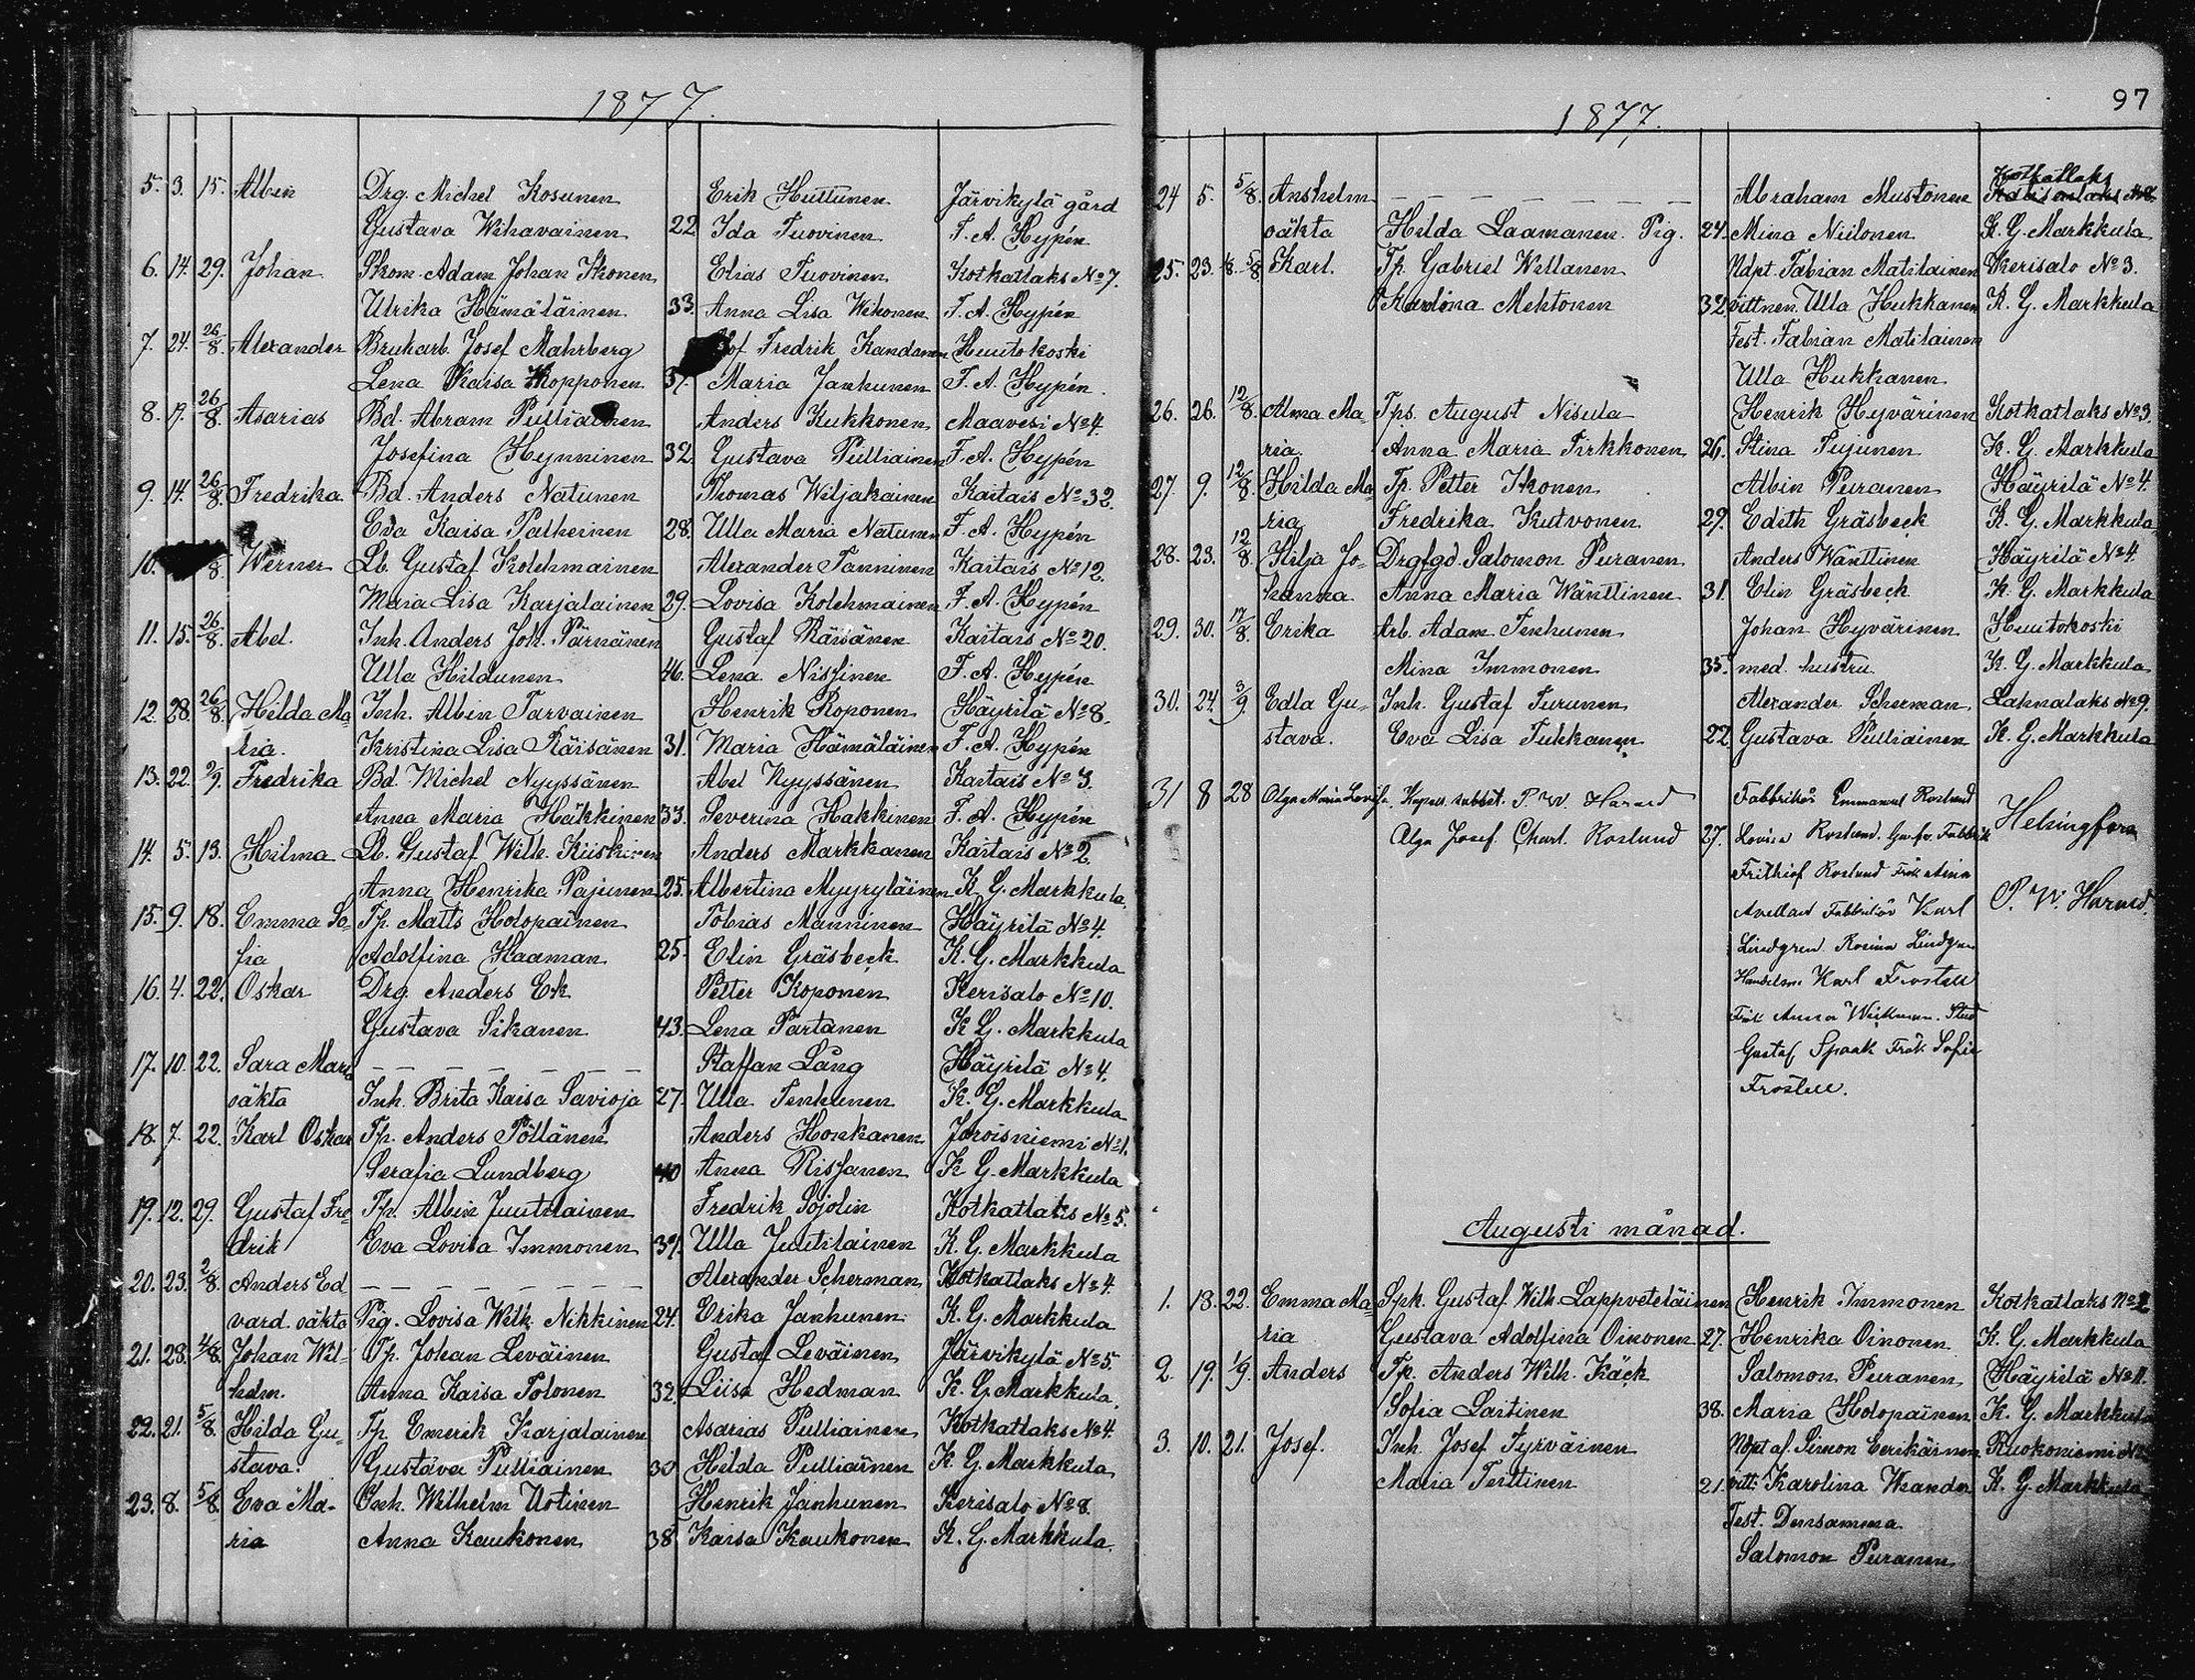 1877.
5. 3. 15. Albin Drg. Michel Kosunen Erik Huttunen Järvikylä gård
Gustava Wihavainen 22 Ida Tuovinen F. A. Hypén
6. 14. 29. Johan Skom. Adam Johan Ikonen Elias Tuovinen Kotkatlaks No 7.
Ulrika Hämäläinen 33. Anna Lisa Wihonen F. A. Hypén
7. 24. 26/8. Alexander Brukarb. Josef Mahrberg Fredrik Kandanen Huutokoski
Lena Kaisa Kopponen 37. Maria Janhunen F. A. Hypén.
8. 17. 26/8. Asarias Bd. Abram Pulliainen Anders Kukkonen Maavesi No 4.
Josefina Hynninen 32. Gustava Pulliainen F. A. Hypén
9. 14. 26/8. Fredrika Bd. Anders Natunen Thomas Wiljakainen Kaitais No 32.
Eva Kaisa Patheinen 28. Ulla Maria Natunen F. A. Hypén
10. 8. Werner Lb. Gustaf Kolehmainen Alexander Tanninen Kaitais No 12.
Maria Lisa Karjalainen 29. Lovisa Kolehmainen F. A. Hypén
11. 15. 26/8. Abel. Inh. Anders Joh. Pärnänen Gustaf Räisänen Kaitais No 20.
Ulla Hildunen 46. Lena Nissinen F. A. Hypén
12. 28. 26/8. Hilda Ma- Inh. Albin Tarvainen Henrik Roponen Häyrilä No 8.
ria. Kristina Lisa Räisänen 31. Maria Hämäläinen F. A. Hypén
13. 22. 2/9. Fredrika Bd. Michel Nyyssänen Abel Nyyssänen Kaitais No 3.
Anna Maria Häkkinen 33. Severina Hakkinen F. A. Hypén
14. 5. 13. Hilma Lb. Gustaf Wilh. Kiiskinen Anders Markkanen Kaitais No 2.
Anna Henrika Pajunen 25. Albertina Myyryläinen K. G. Markkula.
15. 9. 18. Emma So- Tp. Matts Holopainen Tobias Manninen Häyrilä No 4.
fia Adolfina Haaman 25. Elin Gräsbeck K. G. Markkula
16. 4. 22. Oskar Drg. Anders Ek Petter Koponen Kerisalo No 10.
Gustava Sikanen 43. Lena Partanen K. G. Markkula
17. 10. 22. Sara Maria — — — — — — Staffan Lång Häyrilä No 4.
oäkta Inh. Brita Kaisa Savioja 27. Ulla Tenhunen K. G. Markkula
18. 7. 22. Karl Oskar Tp. Anders Pöllänen Anders Honkanen Joroisniemi No 1.
Serafia Lundberg 40 Anna Rissanen K. G. Markkula
19. 12. 29. Gustaf Fre- Tp. Albin Juutilainen Fredrik Sojolin Kotkatlaks No 5.
drik Eva Lovisa Immonen 37. Ulla Juutilainen K. G. Markkula
20. 23. 2/8. Anders Ed — — — — — — Alexander Scherman Kotkatlaks No 4.
vard. oäkta Pig. Lovisa Wilh. Nikkinen 24. Erika Janhunen K. G. Markkula
21. 28. 4/8. Johan Wil- Tp. Johan Leväinen Gustaf Leväinen Järvikylä No 5.
helm. Anna Kaisa Tolonen 32. Liisa Hedman K. G. Markkula.
22. 21. 5/8. Hilda Gu- Tp. Emerik Karjalainen Asarias Pulliainen Kotkatlaks No 4.
stava. Gustava Pulliainen 30 Hilda Pulliainen K. G. Markkula
23. 8. 5/8. Eva Ma- Inh. Wilhelm Uotinen Henrik Janhunen Kerisalo No 8.
ria Anna Kaukonen 38 Kaisa Kaukonen K. G. Markkula.
97
1877.
Kotkatlaks
24 5. 5/8. Anshelm — — — — — — Abraham Mustonen
oäkta Hilda Laamanen. Pig. 24. Mina Niilonen K. G. Markkula
25. 23. 5/8. Karl. Tp. Gabriel Willanen Ndpt. Fabian Matilainen Kerisalo No 3.
Karolina Mehtonen 32. vittnen. Ulla Hukkanen K. G. Markkula
Test. Fabian Matilainen
Ulla Hukkanen
26. 26. 12/8. Alma Ma- Tps. August Nisula Henrik Hyvärinen Kotkatlaks No 3.
ria. Anna Maria Tirkkonen 26. Stina Pujunen K. G. Markkula
27. 9. 12/8. Hilda Ma Tp. Petter Ikonen Albin Puranen Häyrilä No 4.
ria Fredrika Kutvonen 29. Edith Gräsbeck K. G. Markkula
28. 23. 12/8. Hilja Jo- Drgfgd. Salomon Puranen Anders Wänttinen Häyrilä No 4
hanna. Anna Maria Wänttinen 31. Elin Gräsbeck K. G. Markkula
29. 30. 17/8. Erika Arb. Adam Tenhunen Johan Hyvärinen Huutokoski
Mina Immonen 35. med hustru K. G. Markkula
30. 24. 3/9. Edla Gu- Inh. Gustaf Turunen Alexander Scherman. Lahnalaks No 9.
stava. Eva Lisa Tukkanen 22. Gustava Pulliainen K. G. Markkula
31 8 28 Olga Maria Lovisa. Kapell. subbst. P. W. Harald Fabbrikör Emmanuel Roslund Helsingfors
Olga Josef. Charl. Roslund 27. Lovisa Roslund.
Frithiof Roslund Frök. Mina
Avellan Fabbrikör Karl P. W. Harald.
Lindgren Rosina Lindgren
Handelsm. Karl Frostell
Frök Anna Wickman. Stud
Gustaf Spaak Frök. Sofie
Frostell.
Augusti månad.
1. 18. 22. Emma Ma- Spk. Gustaf Wilh. Lappveteläinen Henrik Immonen Kotkatlaks No 2
ria Gustava Adolfina Oinonen 27. Henrika Oinonen K. G. Markkula
2. 19. 1/9. Anders Tp. Anders Wilh. Käck Salomon Puranen Häyrilä No 11.
Sofia Laitinen 38. Maria Holopainen K. G. Markkula
3. 10. 21. Josef. Inh. Josef Tyrväinen Ndpt af. Simon Eerikäinen Ruokoniemi No
Maria Terttinen 21. vitt: Karolina K. G. Markkula
Test. Densamma
Salomon Puranen